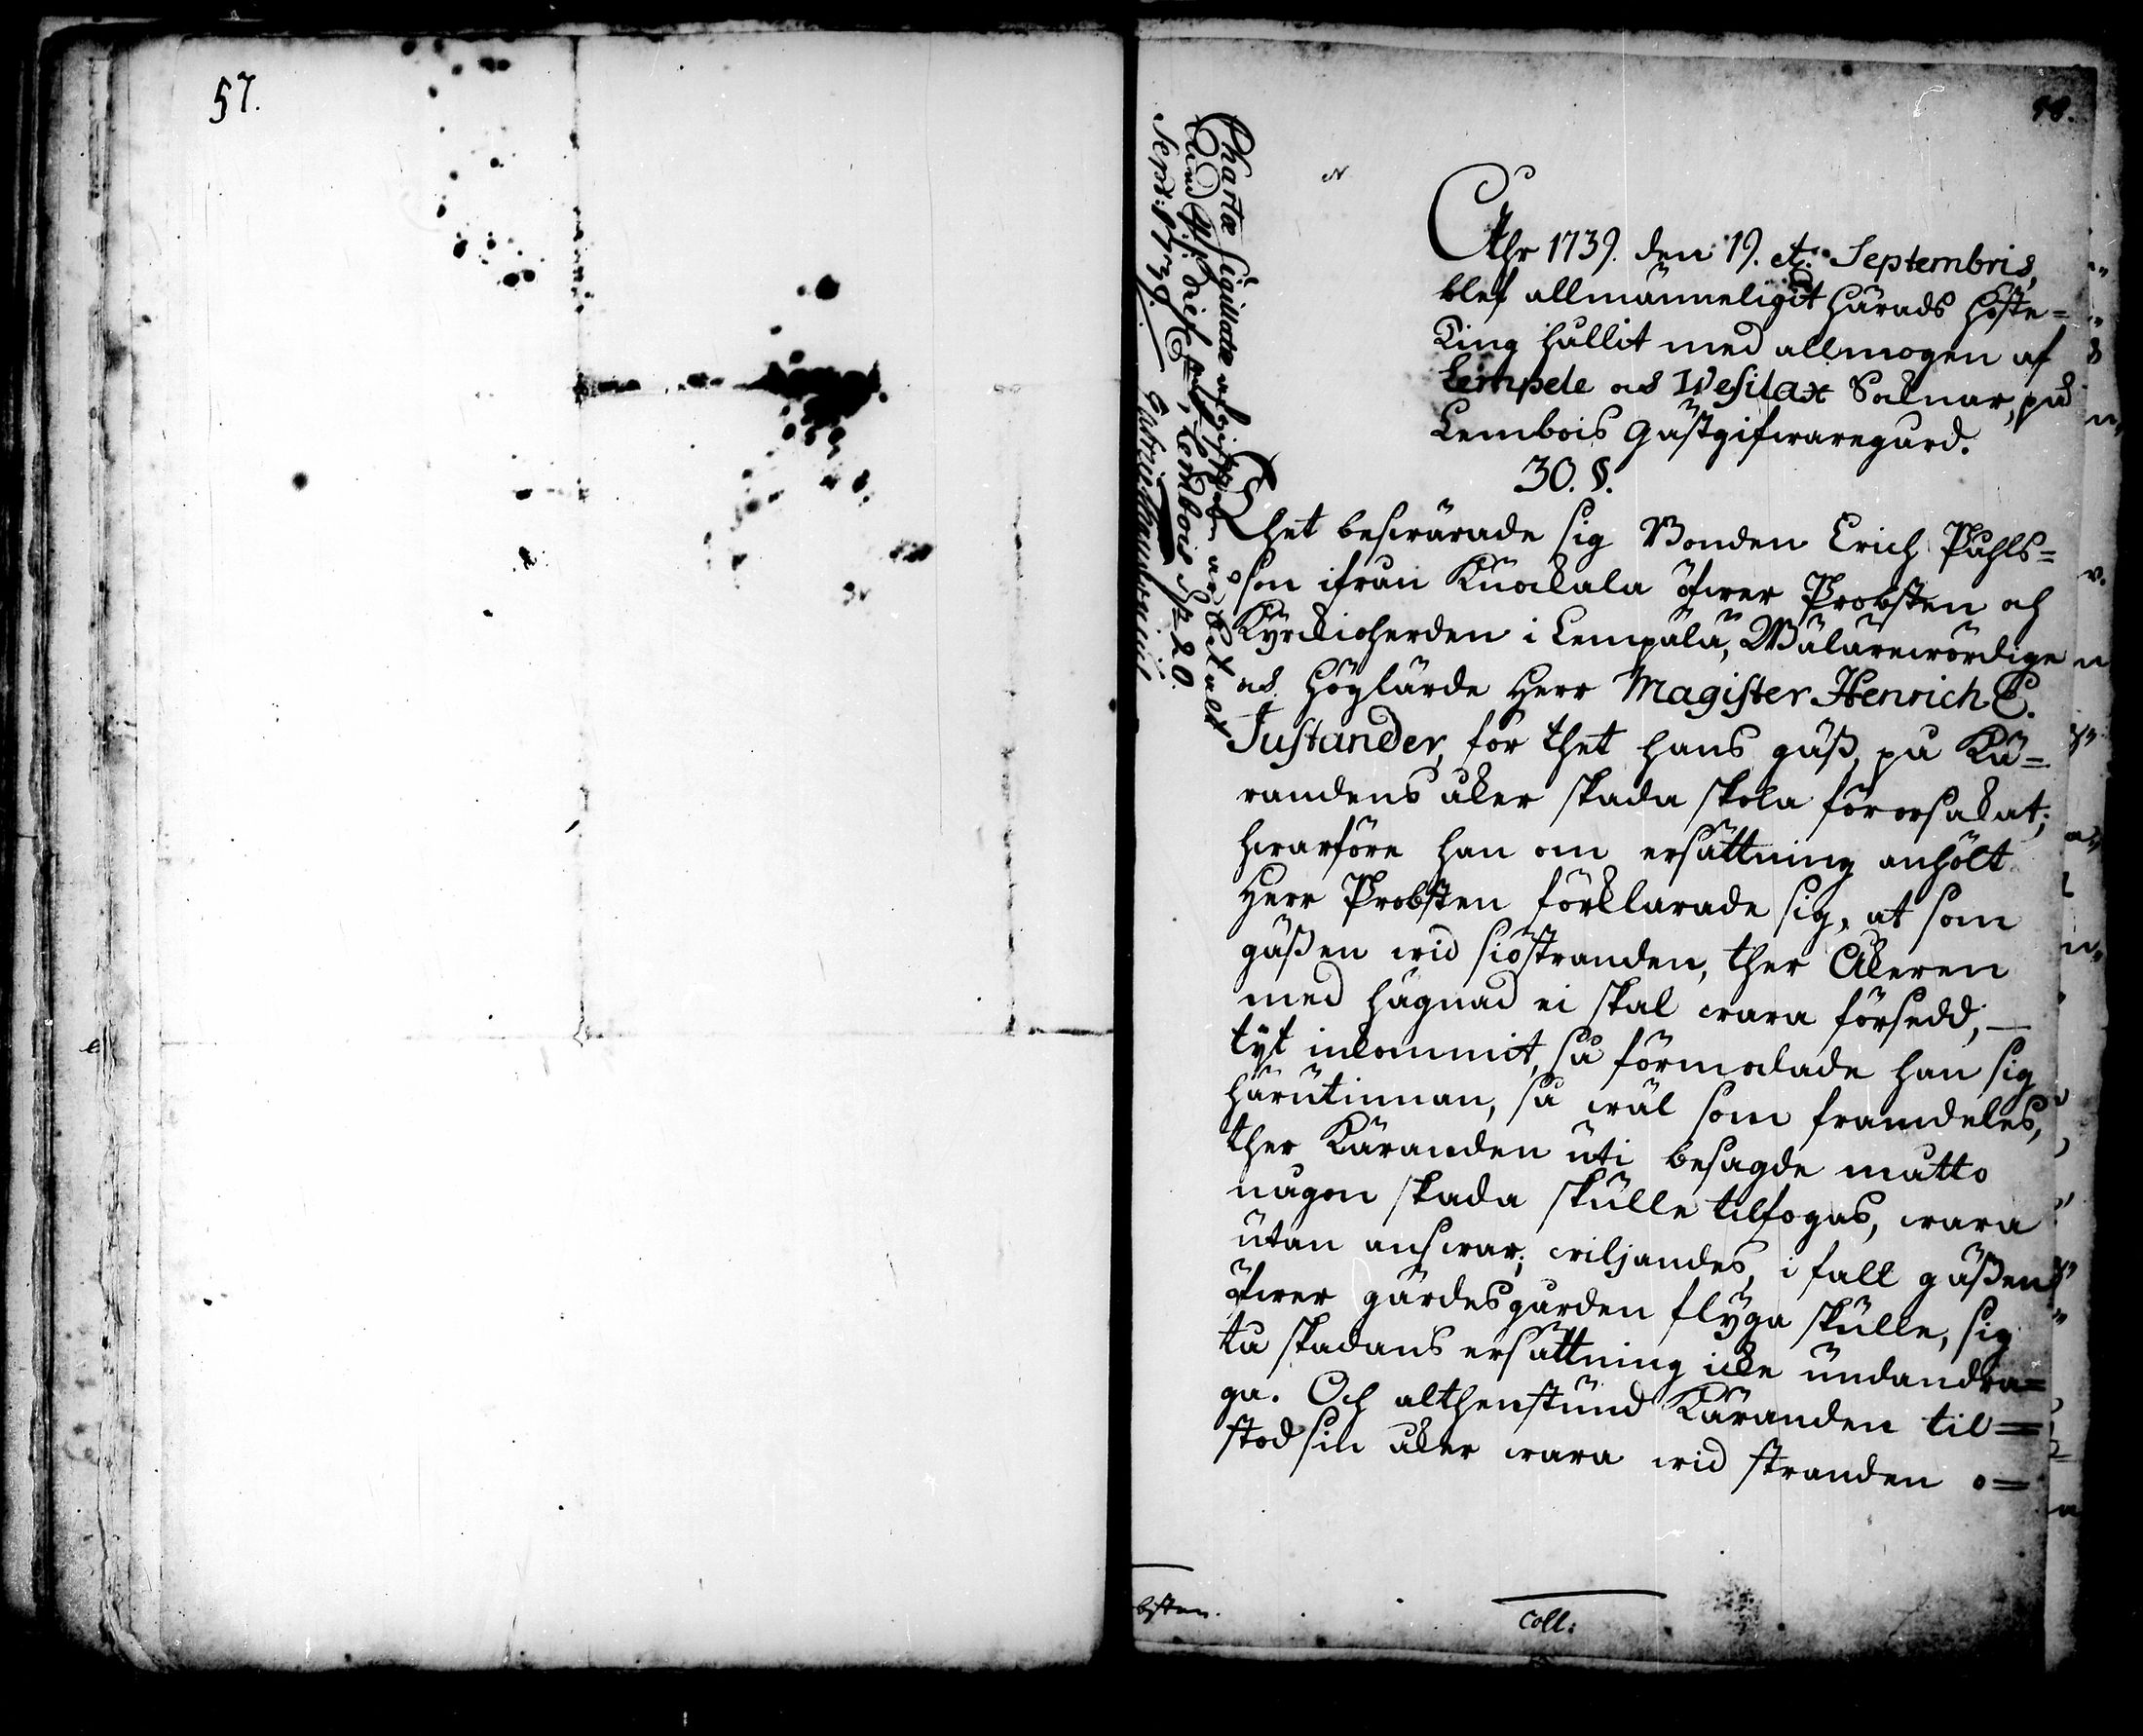 57.
58.
Åhr 1739. den 19. etc. Septembris,
blef allmänneligit Härads Höste=
Ting hållit med allmogen af
Lempele och Wesilax Soknar, på
Lembois Gästgifwaregård.
30. §.
Thet beswärade sig Bonden Erich Påhls=
son ifrån Kuockala öfwer Probsten och
Kyrckioherden i Lempälä, Wälärewördige
och Höglärde Herr Magister Henrich C.
Justander, för thet hans gäss, på Kä=
randens åker skada skola förorsakat;
hwarföre han om ersättning anhölt
Herr Probsten förklarade sig, at som
gässen wid siöstranden, ther Åkeren
med hägnad ei skal wara försedd, —
tyt inkommit, så förmodade han sig
härutinnan, så wäl som framdeles,
ther Käranden uti besagde måtto
någon skada skulle tilfogas, wara
utan answar; wiljandes, i fall gässen
öfwer gärdesgården flyga skulle, sig
tå skadans ersättning icke undandra=
ga. Och althenstund Käranden til=
stod sin åker wara wid stranden o=
Coll:
Charta Sigillata afgiften är betalt
Lembois